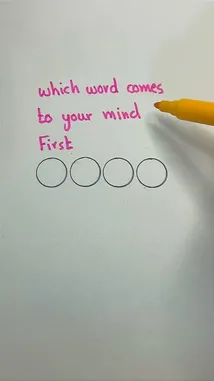 which word comes
to your mind
First